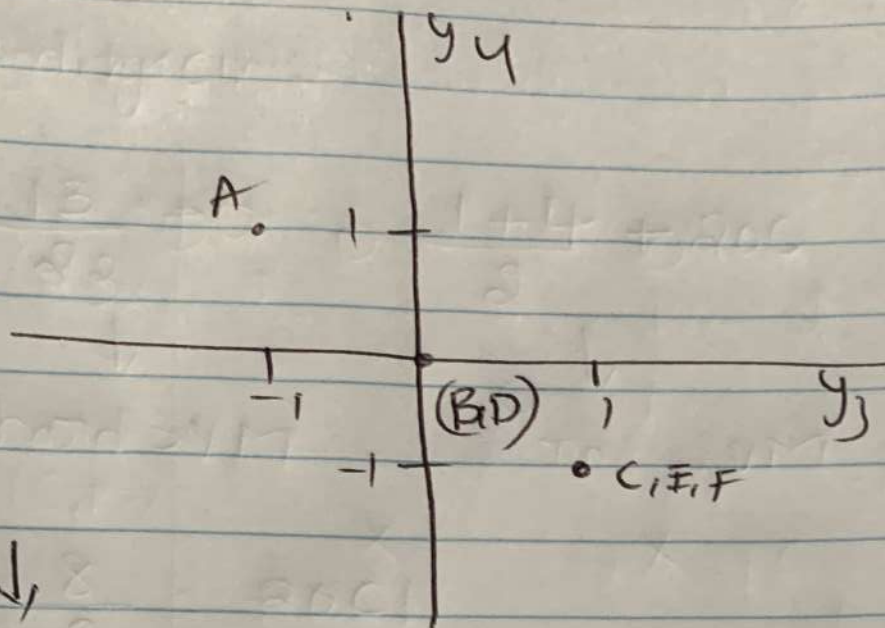 y4
A
1
-1
(B,D)
1
y3
-1
C, E, F